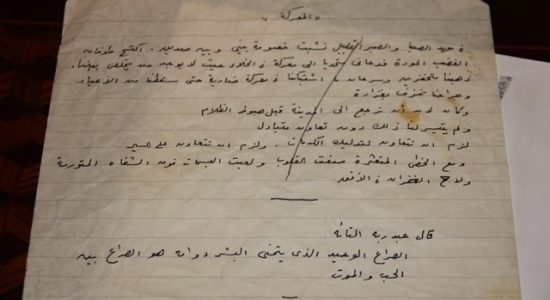 «المعركة»
فى عهد الصبا والصبر القليل نشبت خصومة بينى وبين صديق. اكتسح طوفان
الغضب المودة فدعانى متحديا الى معركة فى الخلاء حيث لا يوجد من يخلص بيننا.
ذهبنا متحفزين وسرعان ما اشتبكنا فى معركة ضارية حتى سقطنا من الاعياء
وجراحنا تنزف بغزارة
وكان لابد أن نرجع الى المدينة قبل هبوط الظلام
ولم يتيسر لنا ذلك دون تعاون متبادل
لزم ان نتعاون لتدليك الكدمات، ولزم ان نتعاون على السير
ومع الخطى المتعثرة صفت القلوب ولعبت البسمات فوق الشفاه المتورمة
ولاح الغفران فى الأفق
قال عبد ربه التائه
الصراع الوحيد الذى يتمنى البشر دوامه هو الصراع بين
الحب والموت